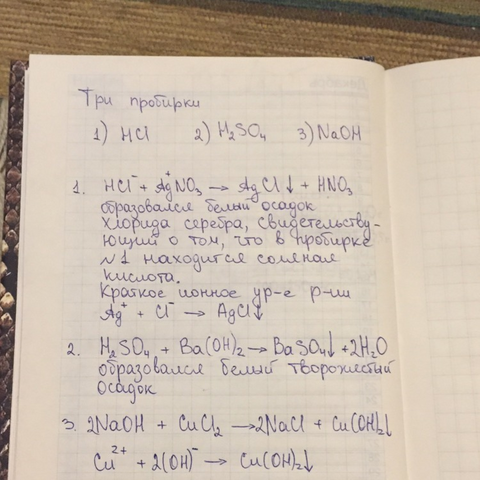 Три пробирки
1) HCl 2) H₂SO₄ 3) NaOH
1. HCl⁻ + Ag⁺NO₃ → AgCl↓ + HNO₃
образовался белый осадок
хлорида серебра, свидетельству-
ющий о том, что в пробирке
№1 находится соляная
кислота.
Краткое ионное ур-е р-ии
Ag⁺ + Cl⁻ → AgCl↓
2. H₂SO₄ + Ba(OH)₂ → BaSO₄↓ + 2H₂O
образовался белый творожистый
осадок
3. 2NaOH + CuCl₂ → 2NaCl + Cu(OH)₂↓
Cu²⁺ + 2(OH)⁻ → Cu(OH)₂↓